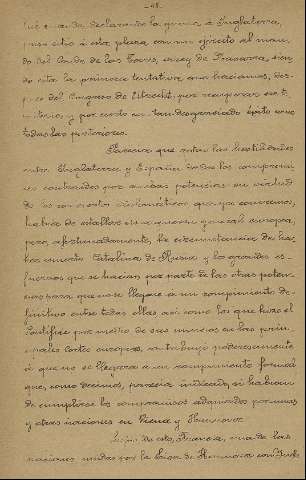 -48-
declarando la guerra á Inglaterra,
puso sitio á esta plaza con un ejército al man-
do del Conde de las Torres, virey de Navarra, sien-
do esta la primera tentativa que hacíamos, des-
pues del Congreso de Utrecht por recuperar ese te-
rritorio, y por cierto con tan desgraciado éxito como
todas las posteriores.
Parecia que rotas las hostilidades
entre Inglaterra y España dados los compromi-
sos contraidos por ambas potencias en virtud
de los convenios que ya conocemos,
habria de estallar una guerra general europea,
pero, afortunadamente, la circunstancia de ha-
ber muerto Catalina de Rusia y los grandes es-
fuerzos que se hacian por parte de las otras poten-
cias para que no se llegase á un rompimiento de-
finitivo entre todas ellas así como los que hizo el
Pontífice por medio de sus nuncios en las prin-
cipales Cortes europeas, contribuyó poderosamente
á que no se llegara á un rompimiento formal
que, como decimos, parecia indicado, si habian
de cumplirse los compromisos adquiridos por unas
y otras naciones en Viena y Hannover.
de esto, Francia, una de las
naciones unidas por la Liga de Hannover con